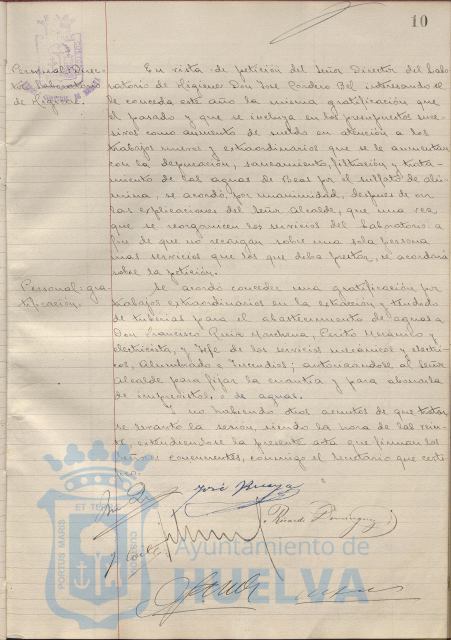 10
Personal: Direc-
tor Laboratorio
de Higiene.
En vista de petición del Señor Director del Labo-
ratorio de Higiene Don José Cordero Bel interesando se
le conceda este año la misma gratificación que
el pasado y que se incluya en los presupuestos
como aumento de sueldo en atención a los
trabajos nuevos y extraordinarios que se le aumentan
con la depuración, saneamiento, filtración y trata-
miento de las aguas de Beas por el sulfato de alú-
mina, se acordó, por unanimidad, después de oir
las explicaciones del Señor Alcalde, que una vez
que se reorganicen los servicios del Laboratorio a
fin de que no recaigan sobre una sola persona
mas servicios que los que deba prestar, se acordará
sobre la petición.
Personal: gra-
tificación.
Se acordó conceder una gratificación por
trabajos extraordinarios en la extracción y tendido
de tuberías para el abastecimiento de aguas a
Don Francisco Ruiz Marchena, Perito Mecánico y
electricista, y Jefe de los servicios mecánicos y electri-
cos, Alumbrado e Incendios; autorizandose al Señor
Alcalde para fijar la cuantía y para abonarla
de imprevistos, o de aguas.
Y no habiendo otros asuntos de que tratar
se levantó la sesión, siendo la hora de las vein-
te, extendiendose la presente acta que firman los
Señores concurrentes, conmigo el Secretario que certi-
fico.
José
Ricardo Dominguez
PORTUS MARIS
ET TERRAE
CUSTODIA
Ayuntamiento de
HUELVA